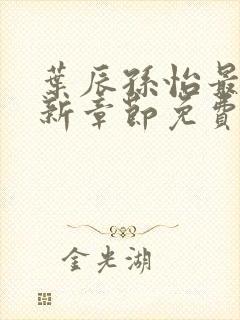 葉辰孫怡最
新章節免費
金光湖